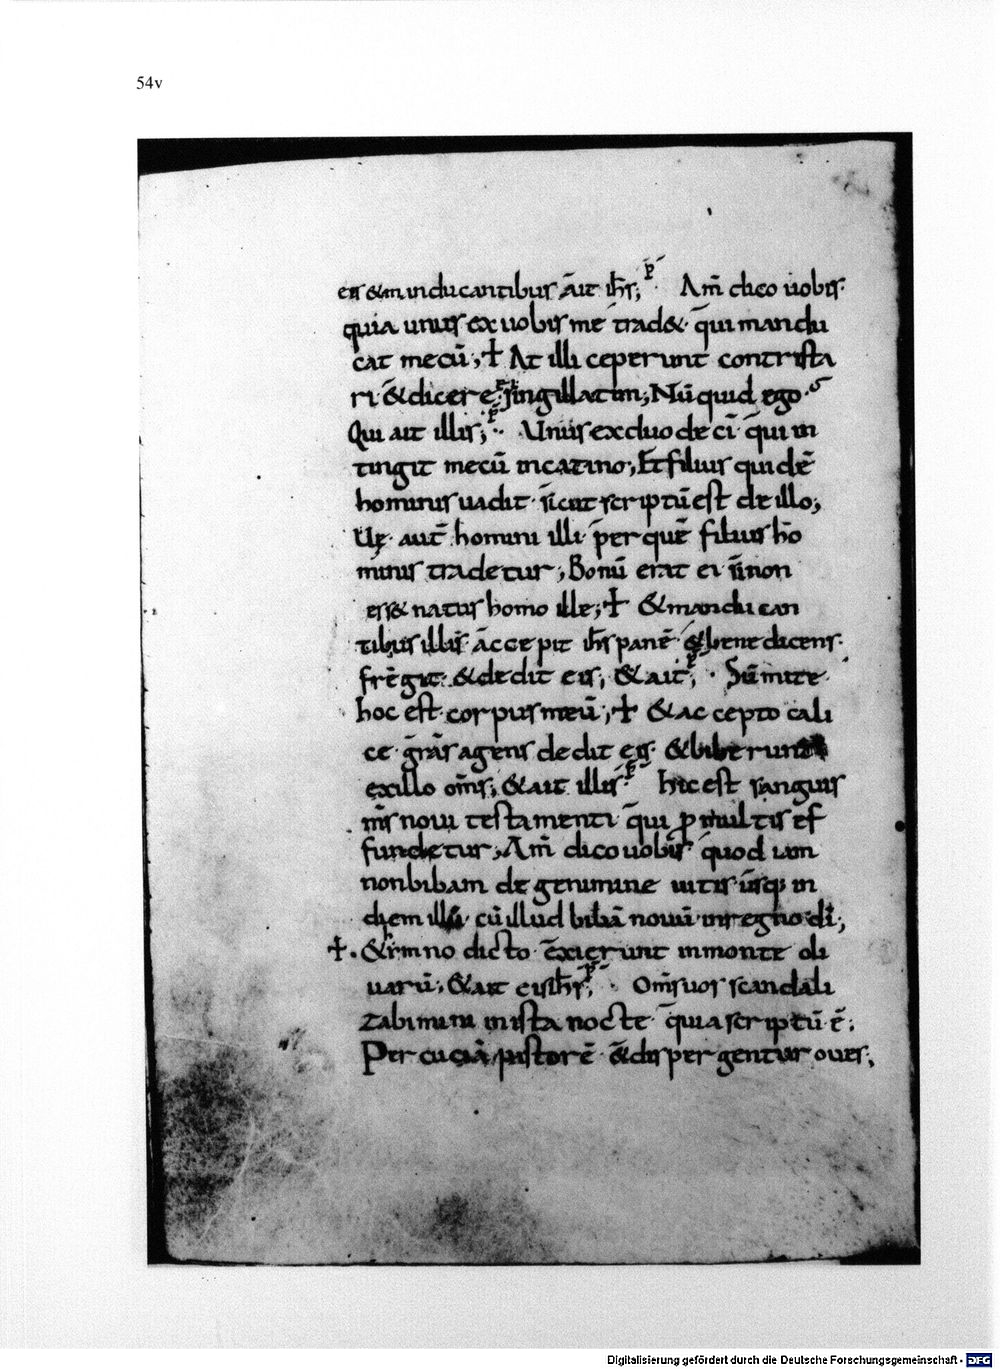 54v
eis & manducantibus ait ihs; p Am̄ dico uobis·
quia unus ex uobis me trad&· qui mandu
cat mecū; ϯ At illi ceperunt contrista
ri· & dicere singillatim; Nūquid ego·
Qui ait illis; p Unus ex duodecī· qui in
tingit mecū in catino; Et filius quidē
hominis uadit· sicut scriptū est de illo;
Uę· aut̄ homini illi· per quē filius ho
minis tradetur; Bonū erat ei si non
ess& natus homo ille; ϯ & manducan
tibus illis· accepit ihs panē· & benedicens·
fregit· & dedit eis; & ait; p Sumite·
hoc est corpus meū; ϯ & accepto cali
ce· grās agens dedit eis· & biberunt
ex illo om̄s; & ait illis· p hic est sanguis
m̄s noui testamenti· qui ꝓ multis ef
fundetur; Am̄ dico uobis· quod iam
non bibam de genimine uitis· usq; in
diem illū· cū illud bibā nouū· in regno dī;
ϯ· & ymno dicto· exierunt in monte oli
uarū; & ait eis ihs; p Om̄s uos scandali
zabimini in ista nocte· quia scriptū ē;
Percuciā pastorē· & dispergentur oues;
Digitalisierung gefördert durch die Deutsche Forschungsgemeinschaft - DFG